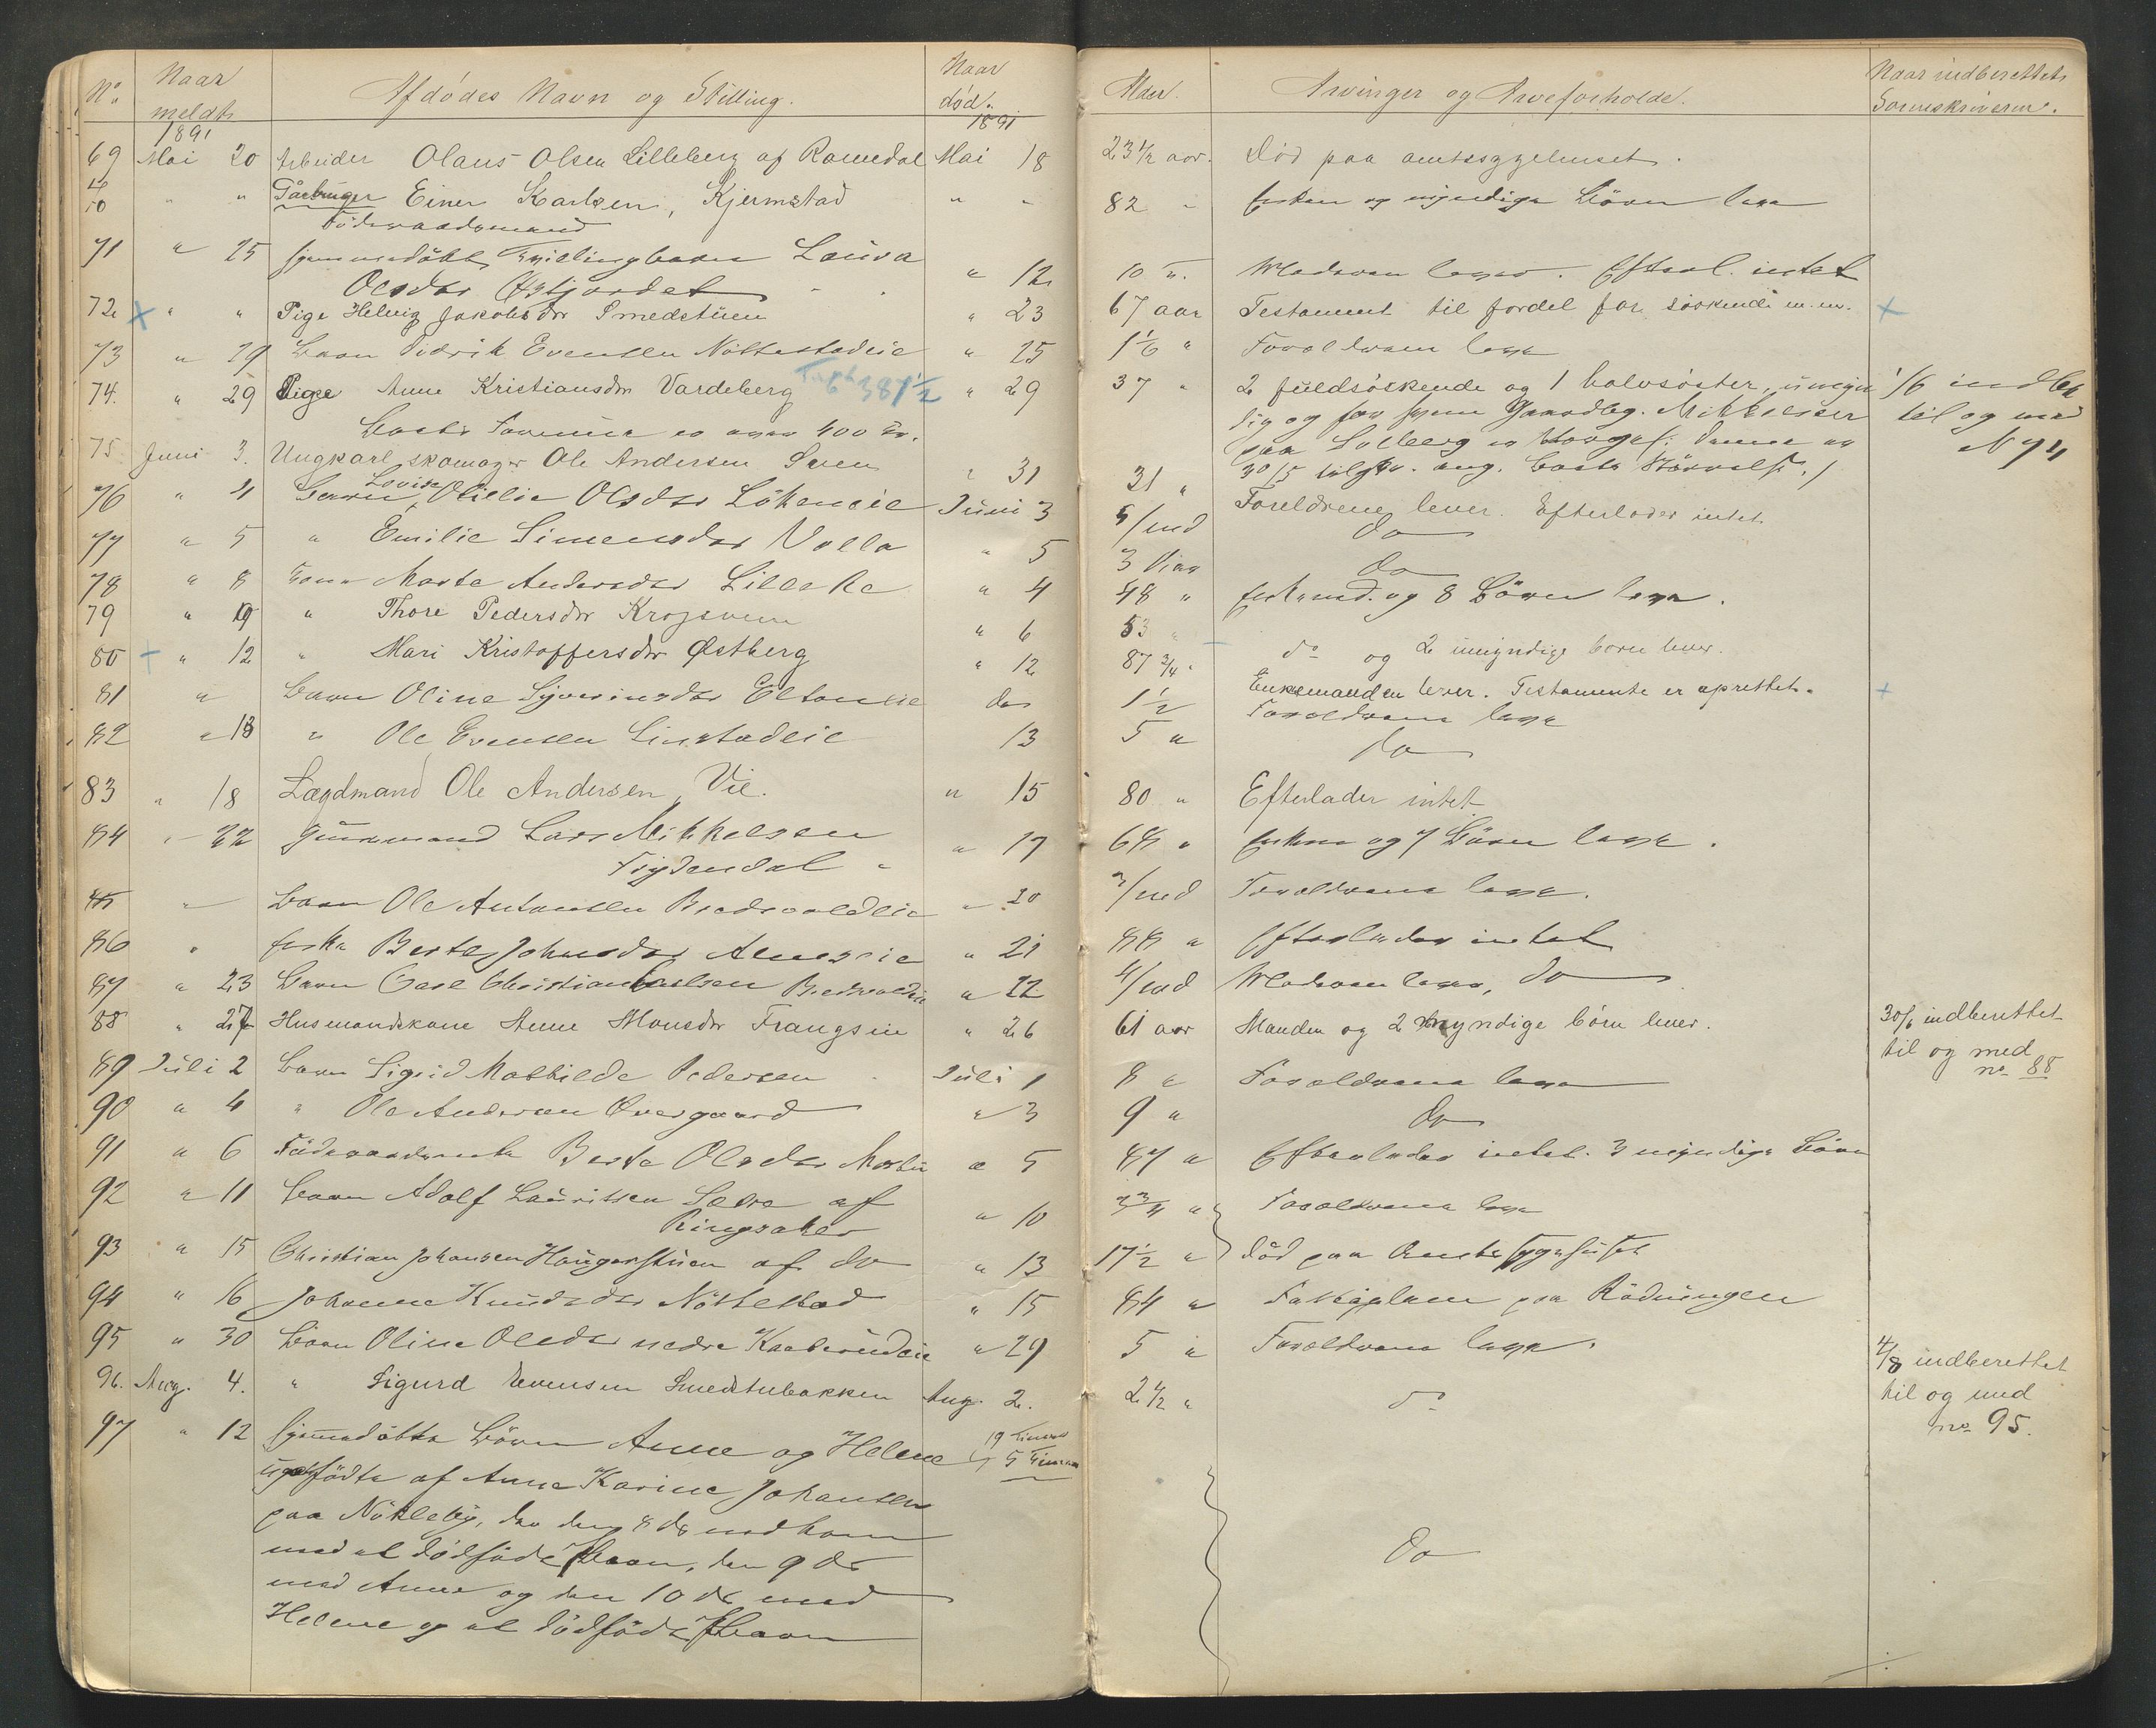 No. Naar meldt Afdödes Navn og Stilling. Naar död. Alder. Arvinger og Arveforholde. Naar indberettet Sorenskriveren.
1891 1891
69 Mai 20 Arbeider Olaus Olsen Lilleberg af Romedal Mai 18 23 1/2 aar. Död paa amtssygehuset.
70 " " Gårbruger Einer Karlsen, Kjermstad " " 82 " Enken og myndige Börn leve
Föderaadsmand
71 " 25 hjemmedöbt Tvillingbarn Laura
Olsdtr Östjordet " 12 10 u. Moderen lever. Efterl. intet
72 " " Pige Helvig Jakobsdtr Smedstuen " 23 67 aar Testament til fordel for söskende m.m.
73 " 29 Barn Didrik Evensen Nöttestadeie " 25 1 1/6 " Forældrene leve
74. " 29 Pige Anne Kristiansdtr Vardeberg " 29 37 " 2 fuldsöskende og 1 halvsöster, umyn 1/6 indber
dig og for hvem Gaardbg. Mikkelsen til og med
paa Solberg er Værge N 74
400 Kr.
75 Juni 3. Ungkarl skomager Ole Andersen Sveen " 31 31 " 30/5
76 " 4 Barn Lovise Otilie Olsdtr Lökeneie Juni 3 5/md Forældrene lever. Efterlader intet
77 " 5 " Emilie Simensdtr Volla " 5 3 Uger do
78 " 8 Kone Marte Andersdtr Lilleke " 4 48 " Enkemd. og 8 Börn leve.
79 " 9 " Thore Pedersdtr Krogsveen " 6 53 " do og 2 umyndige börn lever.
80 " 12 " Mari Kristoffersdtr Østberg " 12 87 3/4 " Enkemanden lever. Testamente er oprettet.
81 " Barn Oline Syverinsdtr Eltoneie do 1 1/2 Forældrene leve
82 " 13 " Ole Evensen Linstadeie 13 5 " do
83 " 18 Lægdmand Ole Andersen, Vie. " 15 80 " Efterlader intet
84 " 22 Huusmand Lars Mikkelsen
Frydendal " 17 68 " Enken og 7 Börn leve.
85 " Barn Ole Antonsen Bredvoldeie " 20 2/md Forældrene leve.
86 " Enke Berte Johnsdtr Almseie " 21 88 " Efterlader intet
87 " 23 Barn Carl Christian Carlsen Bredvoldeie " 22 4/md Moderen lever, do
88 " 27 Husmandskone Anne Monsdtr Frangsøie " 26 61 aar Manden og 2 myndige börn lever. 30/6 indberettet
til og med
no 88
89 Juli 2 Barn Sigrid Mathilde Pedersen Juli 1 8 " Forældrene leve
90 " 4 " Ole Andersen Overgaard " 3 9 " do
91 " 6 Föderaadsenke Berte Olsdtr " 5 87 " Efterlader intet. 3 myndige Börn
92 " 11 Barn Adolf Lauritsen af
Ringsaker " 10 2 3/4 " Forældrene leve
93 " 15 Christian Johansen Haugerstuen af do " 13 17 1/2 " död paa Amtssygehuset
94 " 16 Johanne Knudsdtr Nöttestad " 15 84 " Fattiglem paa Rödningen
95 " 30 Barn Oline Olsdtr nedre Kaaberudeie " 29 5 " Forældrene leve. 4/8 indberettet
til og med
no. 95.
96. Aug. 4. " Sigurd Evensen Smedstubakken Aug. 2. 2 1/2 " do
97 " 12 hjemmedöbte Börn Anne og Helene 19 Timer
5 Timer
födte af Anne Karine Johansen
paa Nökleby, der den 8 ds nedkom
med et dödfödt Barn, den 9 ds
med Anne og den 10 ds med
Helene og et dödfödt Barn
do